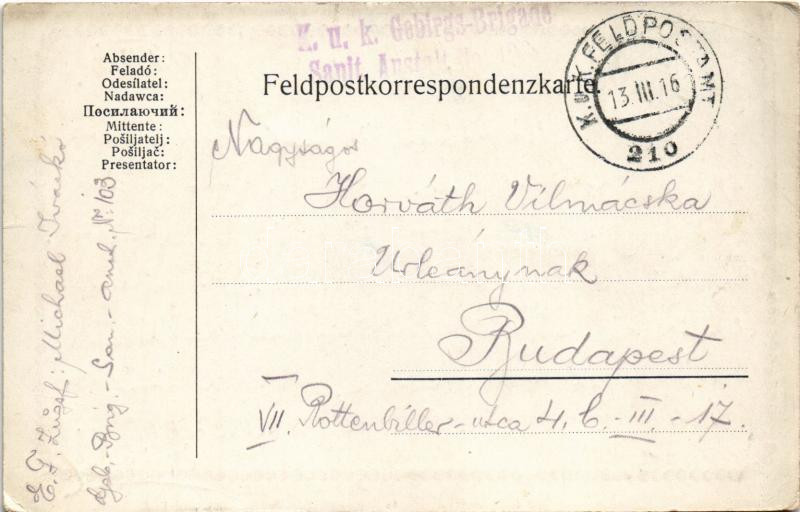 K. u. k. Gebirgs-Brigade
Sanit. Anstalt
K.u.K. FELDPOSTAMT
13.III.16
210
Absender:
Feladó:
Odesílatel:
Nadawca:
Посилаючий:
Mittente:
Pošiljatelj:
Pošiljač:
Presentator:
Feldpostkorrespondenzkarte.
Nagyságos
Horváth Vilmácska
Urleánynak
Budapest
VII. Rottenbiller-utca 4. b. III. - 17.
Zugsf: Michael
Geb. Brig. - San. - Anst. Nr. 103